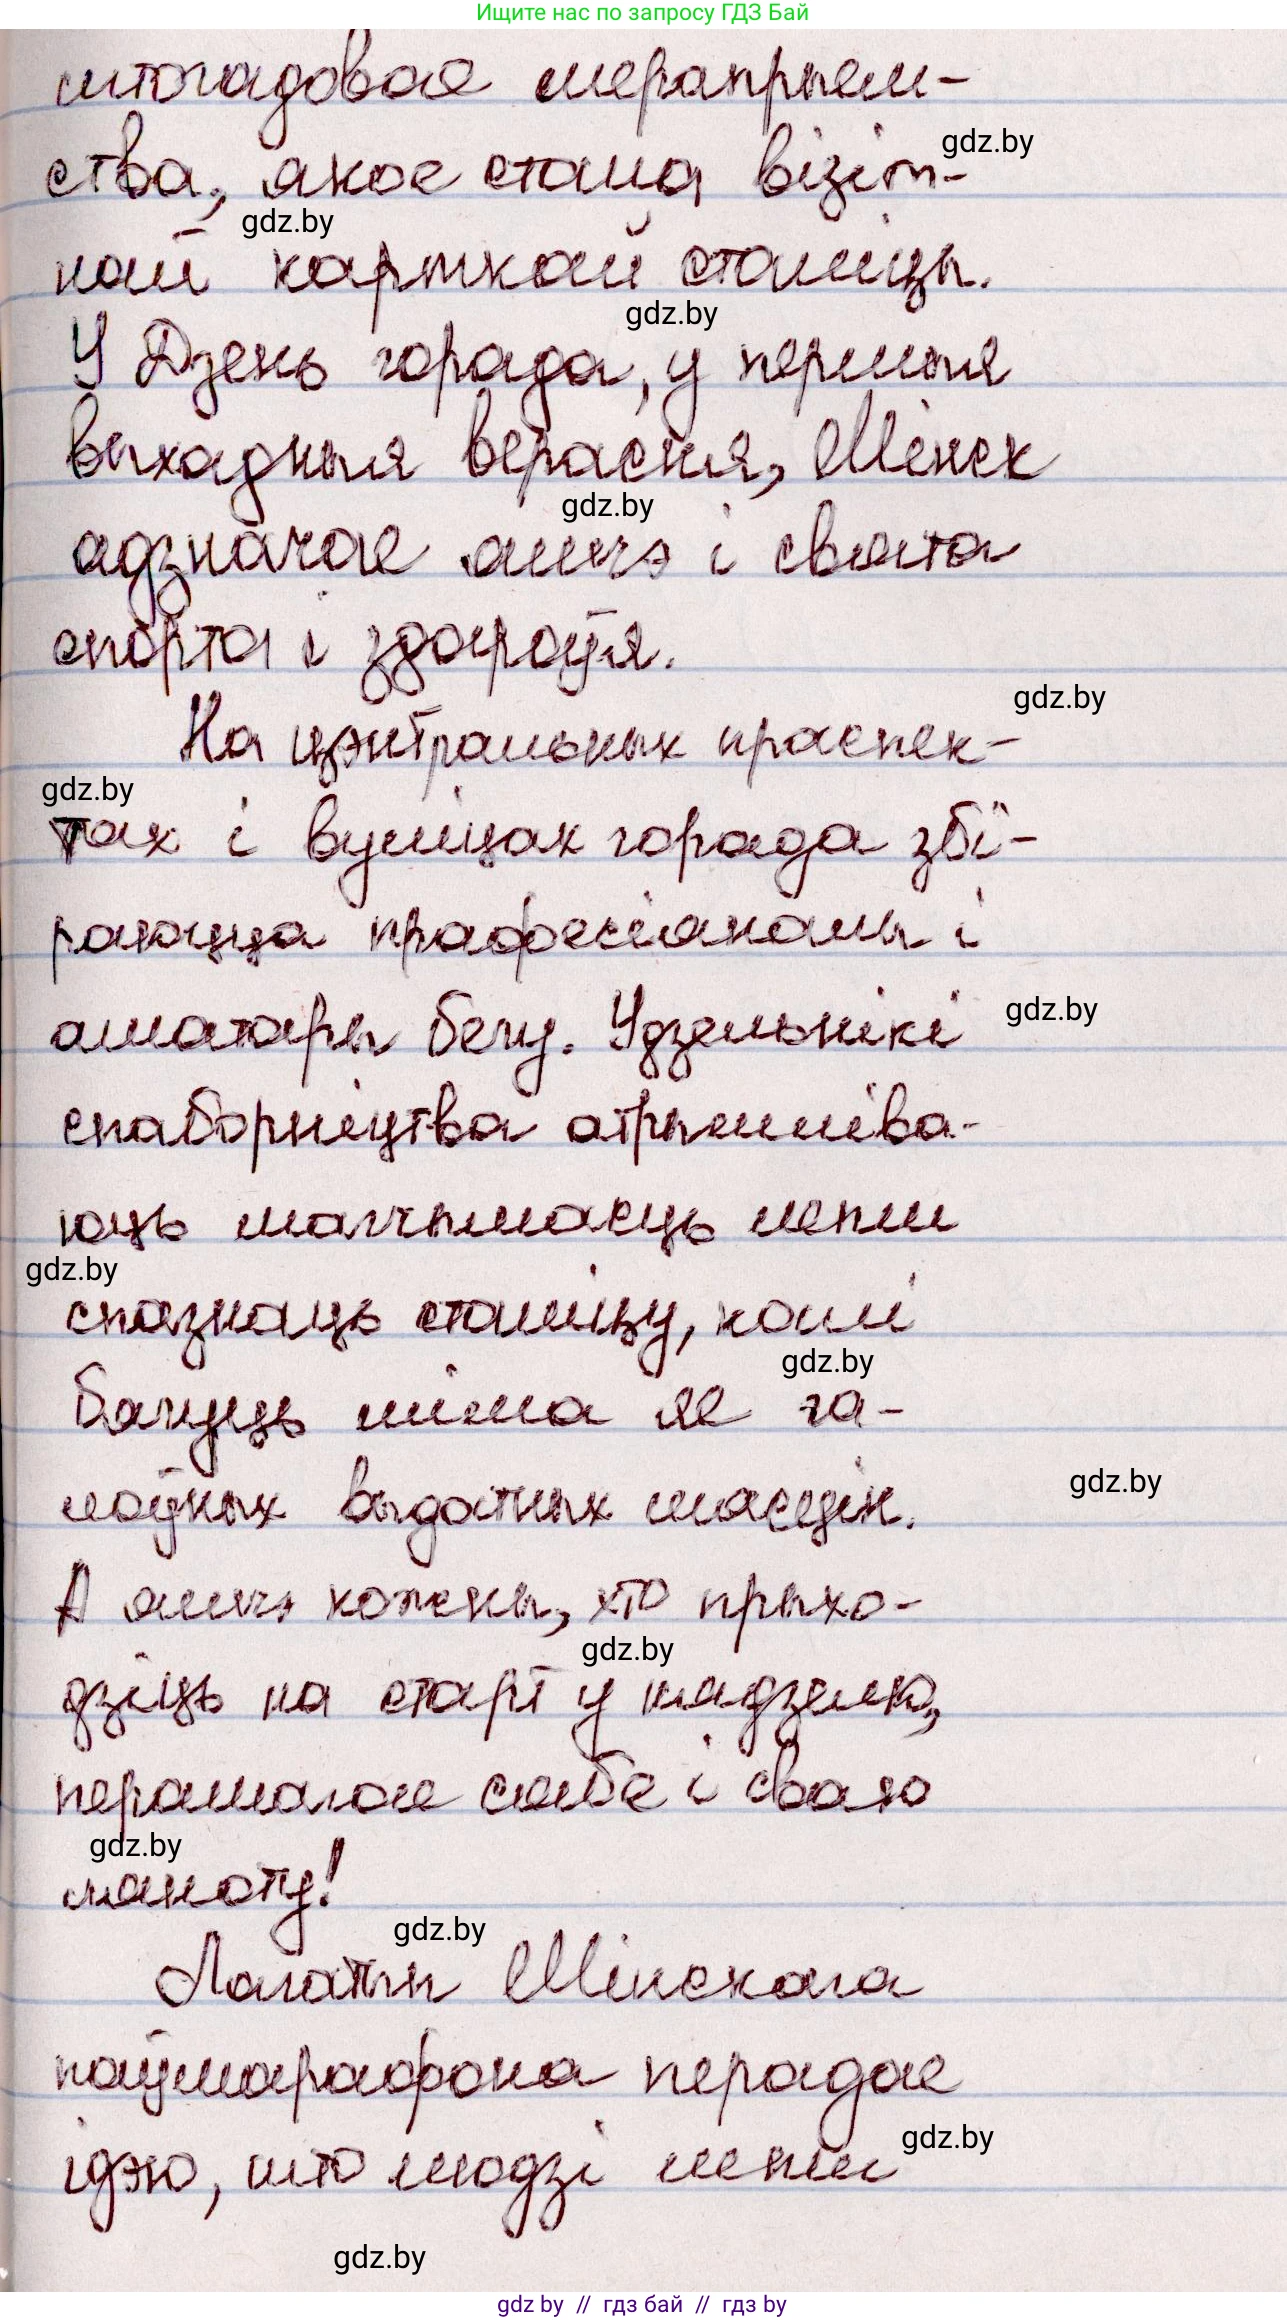 Ищите нас по запросу ГДЗ Бай
штогадовае мерапрыем-
ства, якое стала візіт-
gdz.by
gdz.by
най карткай сталіцы.
gdz.by
У Дзень горада, у першыя
выхадныя верасня, Мінск
gdz.by
адзначае яшчэ і свята
спорта і здароўя.
gdz.by
На цэнтральных праспек-
gdz.by
тах і вуліцах горада збі-
раюцца прафесіяналы і
аматары бегу. Удзельнікі
gdz.by
спаборніцтва атрымліва-
юць магчымасць лепш
gdz.by
спазнаць сталіцу, калі
gdz.by
бягуць міма яе га-
лоўных выдатных мясцін.
gdz.by
А яшчэ кожны, хто прыхо-
gdz.by
дзіць на старт у нядзелю,
перамагае сябе і сваю
gdz.by
ляноту!
gdz.by
Лагатып Мінскага
паўмарафона перадае
ідэю, што людзі лепш
gdz.by
gdz.by
gdz by // гдз бай // гдз by